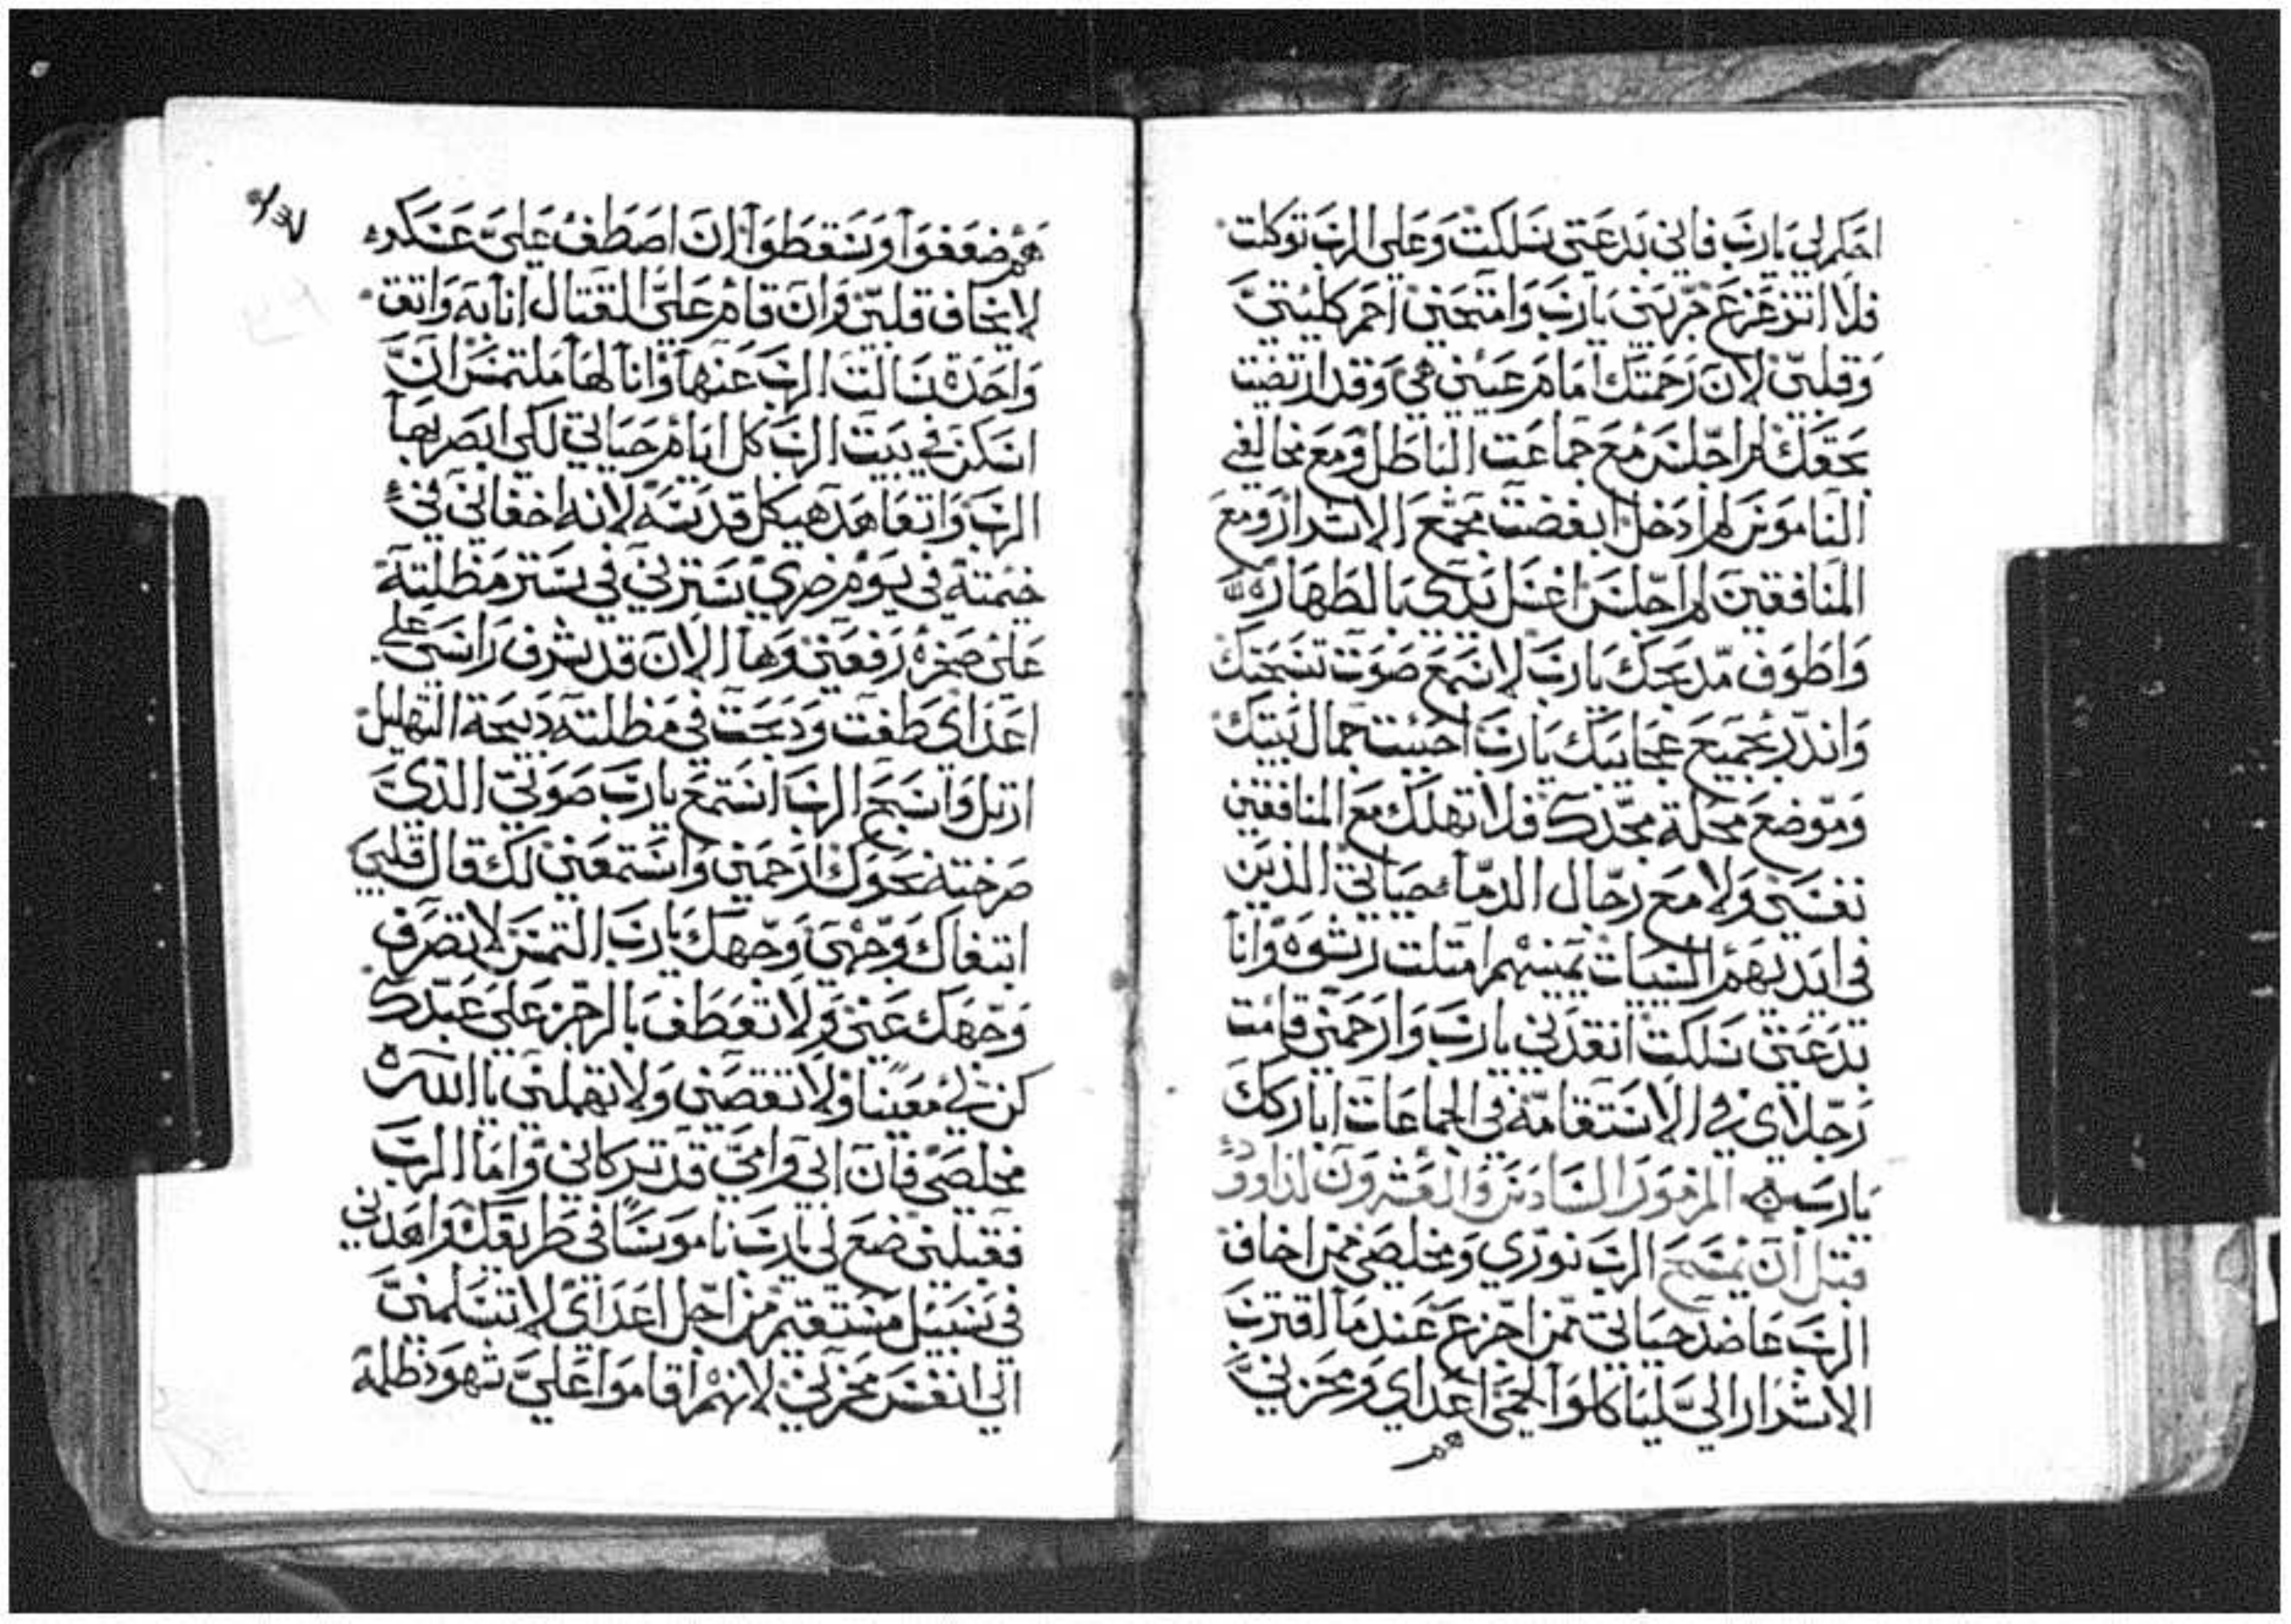 احكم لي يارب فاني بدعتي سلكت وعلى الرب توكلت
فلا اتزعزع جربني يارب وامتحني احم كليتي
وقلبي لان رحمتك امام عيني هي وقد ارتضيت
بحقك لم اجلس مع جماعت الباطل ومع مخالفي
الناموس لم ادخل ابغضت مجمع الاشرار ومع
المنافقين لم اجلس اغسل يدي بالطهاره
واطوف مدبحك يارب لاسمع صوت تسبحتك
واندر بجميع عجايبك يارب احببت جمال بيتك
وموضع محلة مجدك فلا تهلك مع المنافقين
نفسي ولا مع رجال الدماء حياتي الذين
في ايديهم السيات يمينهم امتلت رشوه وانا
بدعتي سلكت انقدني يارب وارحمني قامت
رجلاي في الاستقامة في الجماعات اباركك
يارب المزمور السادس والعشرون لداوود
قبل ان يمسح الرب نوري ومخلصي ممن اخاف
الرب عاضد حياتي ممن اجزع عندما اقترب
الاشرار الي لياكلوا لحمي اعداي ومحزني
هم
هم ضعفوا وسقطوا ان اصطف علي عسكر
لا يخاف قلبي وان قام علي القتال انا به واتق
واحدة سالت الرب عنها وانا لها ملتمس ان
اسكن في بيت الرب كل ايام حياتي لكي ابصر بها
الرب واتعاهد هيكل قدسه لانه اخفاني في
خيمته في يوم ضري سترني في ستر مظلته
على صخره رفعني وها الان قد شرف راسي على
اعداي طفت ودبحت في مظلته دبيحة التهليل
ارتل واسبح الرب استمع يارب صوتي الذي
صرخته نحوك ارحمني واستمعني لك قال قلبي
ابتغاك وجهي وجهك يارب التمس لا تصرف
وجهك عني ولا تعطف بالرجز على عبدك
كن لي معينا ولا تقصني ولا تهملني يا الله
مخلصي فان ابي وامي قد تركاني واما الرب
فقبلني ضع لي يارب ناموسا في طريقك واهدني
في سبيل مستقيم من اجل اعداي لا تسلمني
الى انفس محزني لانهم اقاموا علي شهود ظلمة